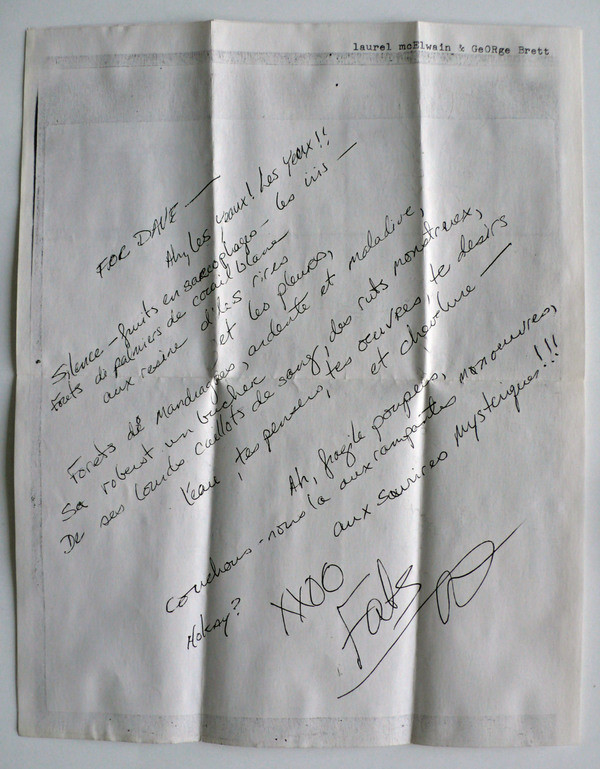 laurel mcElwain & GeORge Brett
FOR DAVE —
Ah, les yeaux! Les yeux!!
Silence - fruits en sarcophages - les iris —
Faits de palmiers de corail blanc
aux resine d'iles rires
et les pleurs,
Forets de Mandragores, ardente et maladive,
Sa robent un bucher, des ruts monstreux,
De ses lourds caillots de sang, tes oeuvres, te desirs
l'eau, tes pensers, et chevelure —
Ah, fragile poupees,
Couchons-nous la aux rampantes
aux sourires mysteriques!!!
Hokay?
XXOO
Fats